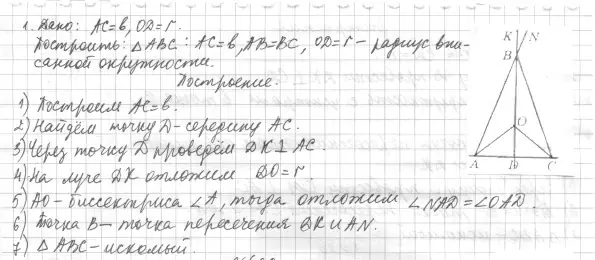 1. Дано: AC=b, OD=r.
Построить: △ABC: AC=b, AB=BC, OD=r – радиус впи-
санной окружности.
Построение.
1) Построим AC=b.
2) Найдём точку D – середину AC.
3) Через точку D проведём DK⊥AC.
4) На луче DK отложим DO=r.
5) AO – биссектриса ∠A, тогда отложим ∠NAO=∠OAD.
6) Точка B – точка пересечения DK и AN.
7) △ABC – искомый.
K N
B
O
A D C